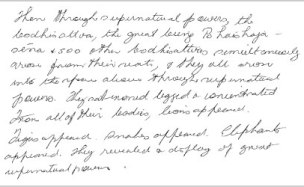 Then through supernatural powers, the
bodhisattva, the great being Bhaishajya-
sena & 500 other bodhisattvas simultaneously
arose from their seats, & they all arose
into the space above through supernatural
powers. They sat crossed legged & concentrated
From all of their bodies, lions appeared.
Tigers appeared snakes appeared. Elephants
appeared. They revealed a display of great
supernatural powers.